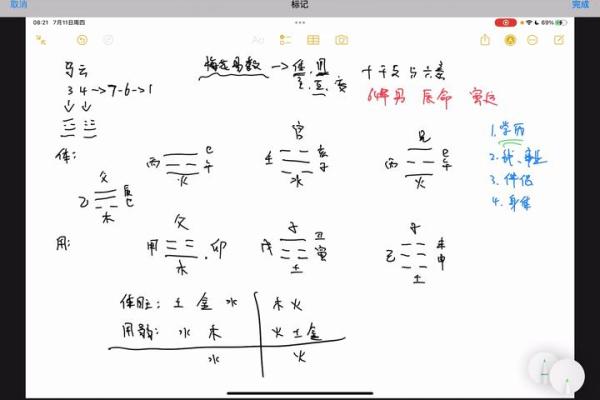 取消 标记 完成
08:21 7月11日周四 69%
Aa
马云 梅花易数→体.用 十干支与六亲
主.互.变
3 4→7-6→1 64年男 辰命 寅运
1.学历
2.钱、事业
3.伴侣
4.身体
体: 父 官 兄
乙 木
丙 火 午
壬 水 子
丙 火 午
用: 父 子 子
木 卯
戊 土 丑 寅
己 土 未 申
体旺: 土 金 水 木 火
用弱: 水 木 火 土 金
水 火